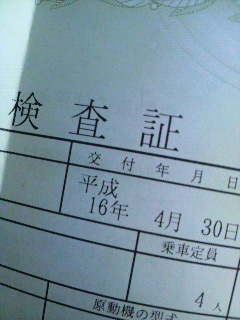 検査証
交付年月日
平成
16年 4月 30日
乗車定員
4人
原動機の型式